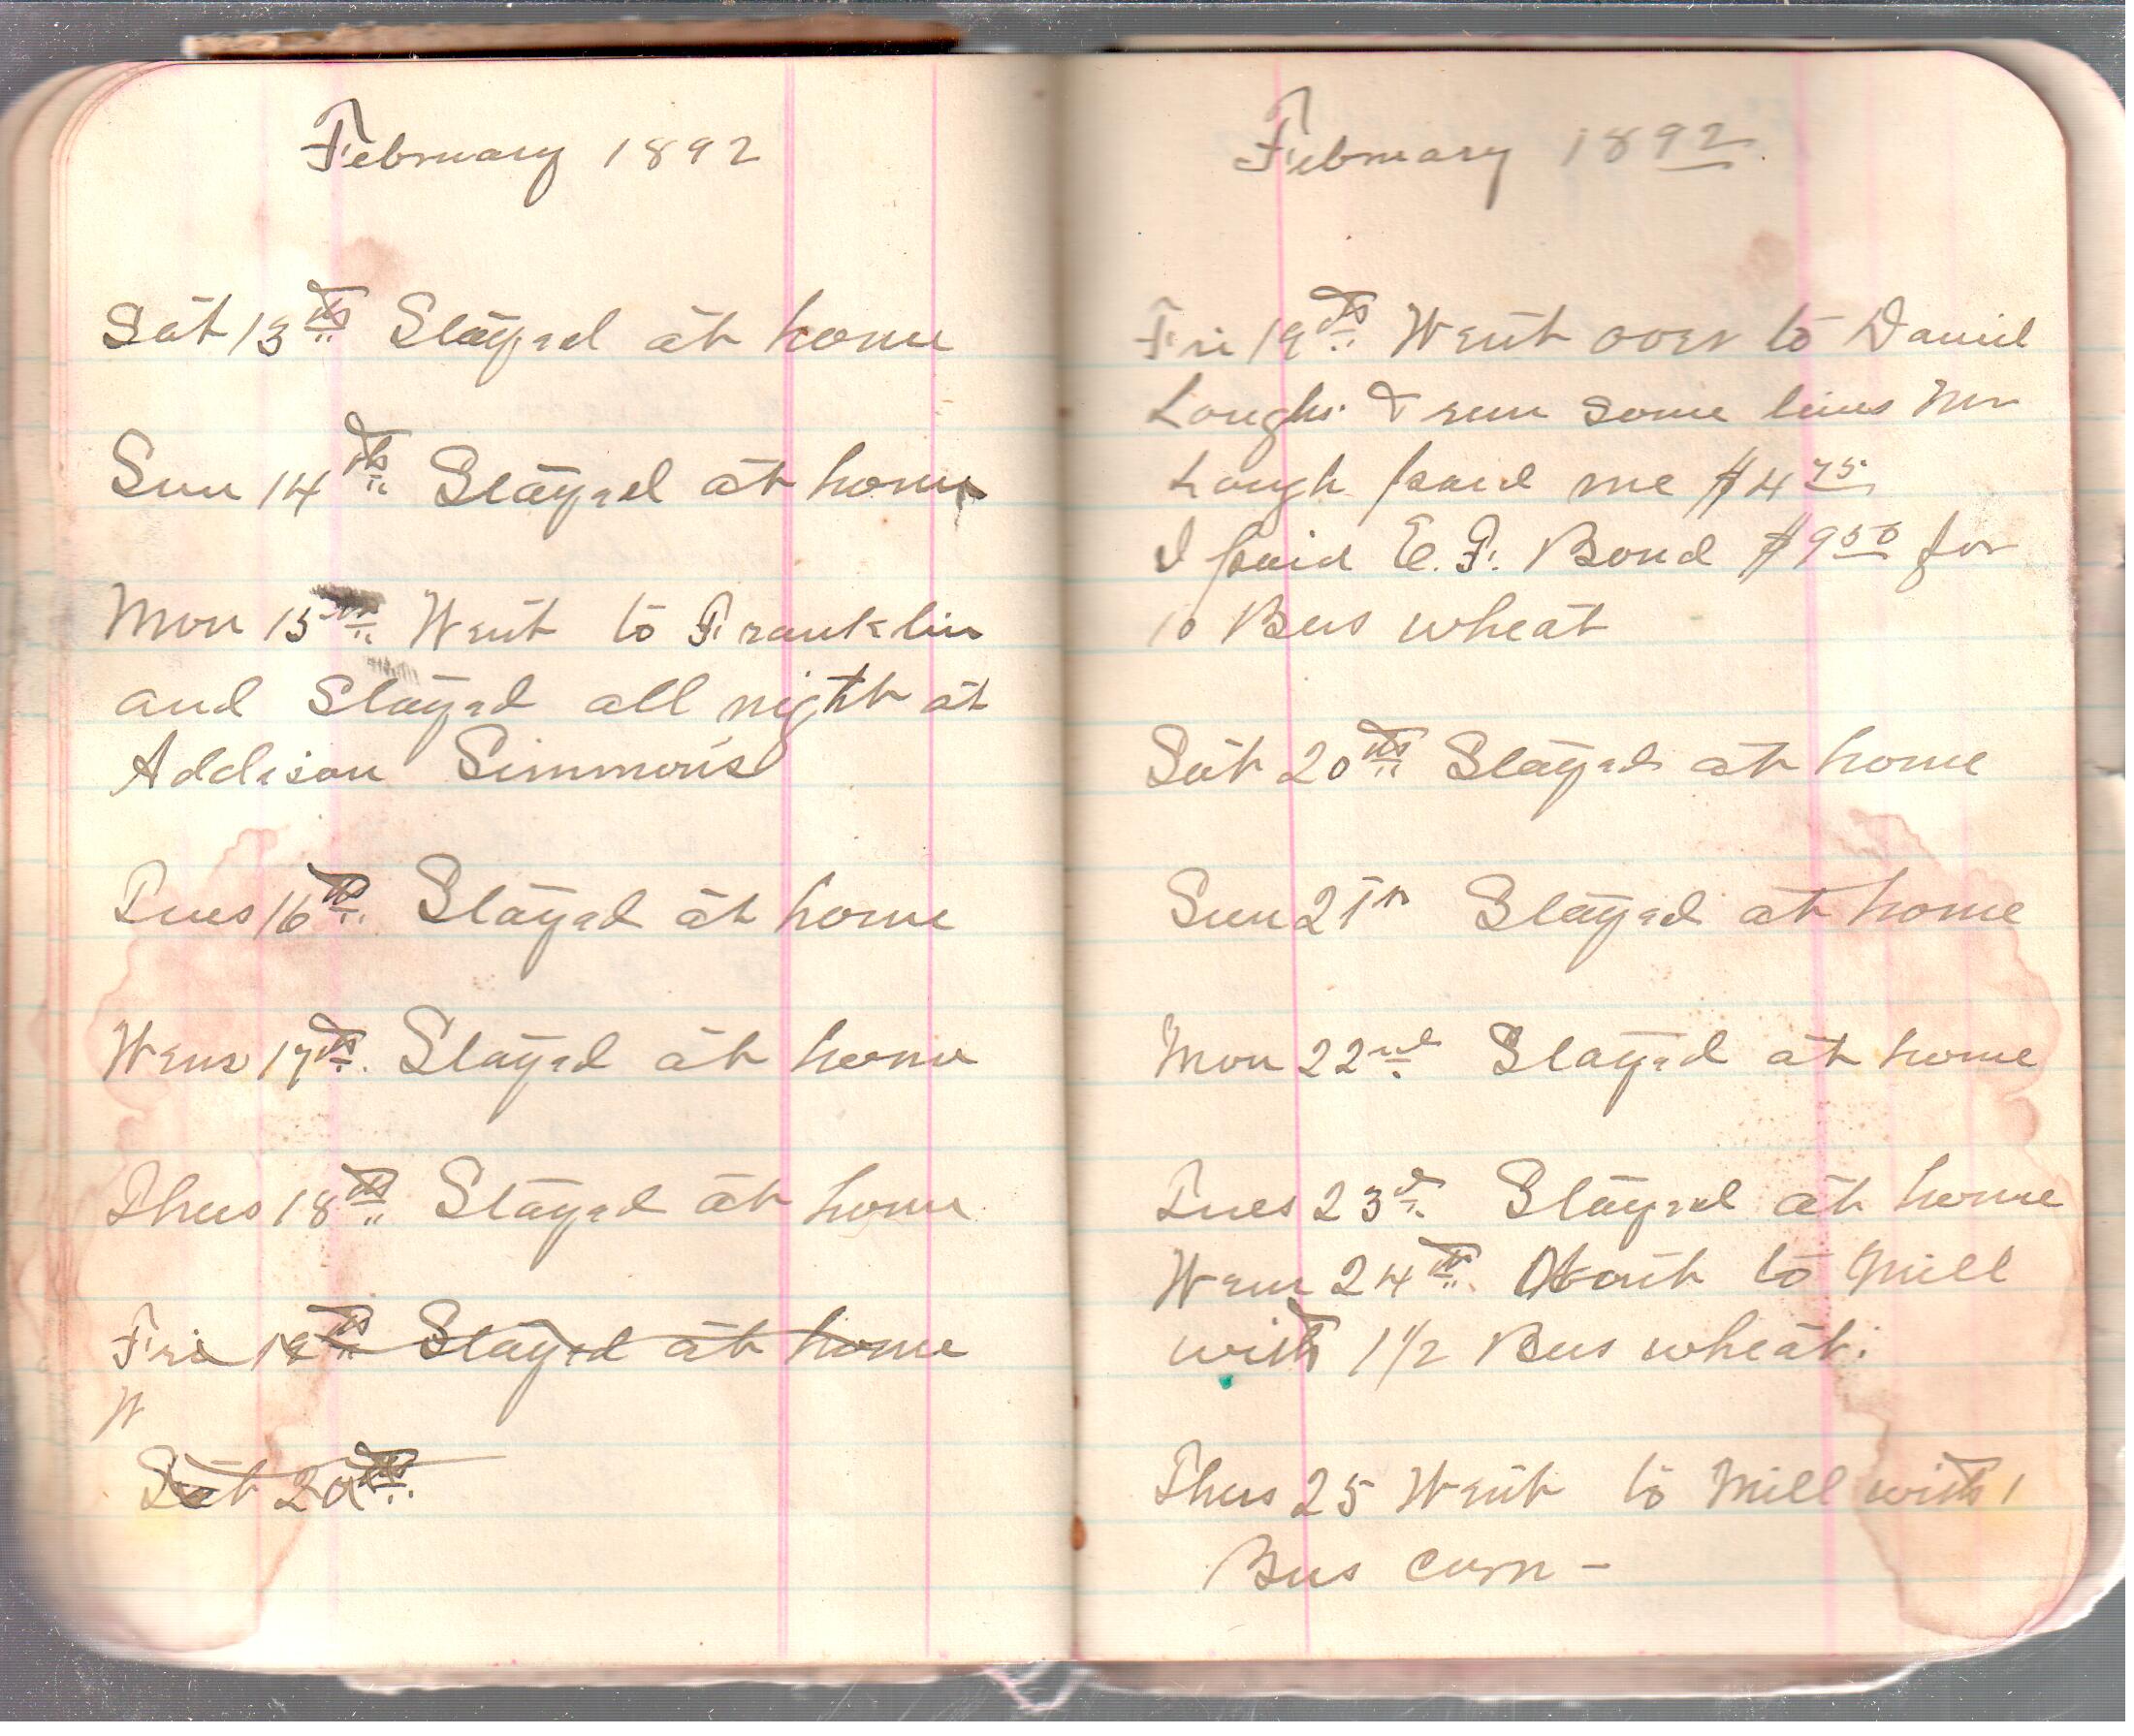 February 1892
Sat 13th Stayed at home
Sun 14th Stayed at home
Mon 15th Went to Franklin
and Stayed all night at
Addison Simmons
Tues 16th Stayed at home
Wens 17th Stayed at home
Thus 18th Stayed at home
Fri 19th Stayed at home
W
Sat 20th
February 1892
Fri 19th Went over to Daniel
Loughs & run some lines Mr
Lough paid me $4 75
I paid E. F. Bond $9 50 for
10 Bus wheat
Sat 20th Stayed at home
Sun 21st Stayed at home
Mon 22nd Stayed at home
Tues 23d Stayed at home
Wens 24th to Mill
with 1 1/2 Bus wheat.
Thus 25 Went to Mill with 1
Bus corn -